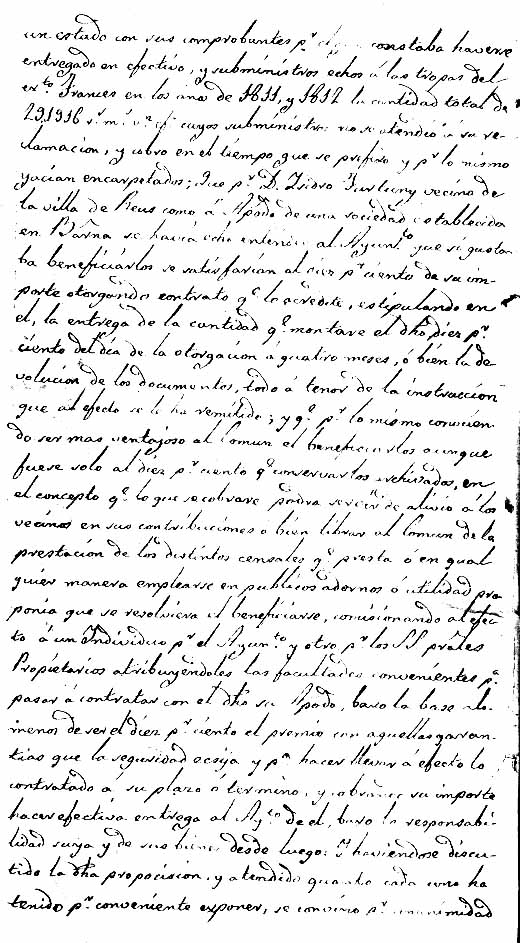 un estado con sus comprobantes p.r constaba haverse
entregado en efectivo, y subministros echos á las tropas del
ex.to Frances en los años de 1811, y 1812 la cantidad total de
291916 r.s m.s v.n cuyos subministros no se atendió á su re-
clamacion, y cobro en el tiempo que se prefixo y p.r lo mismo
yacian encarpetados; Que p.r D. Isidro vecino de
la villa de Reus como á Apod.o de una sociedad establecida
en Barna se havia echo entender al Ayun.to que si gusta-
ba beneficiarlos se satisfarian al diez p.r ciento de su im-
porte otorgando contrato q.e lo acredite, estipulando en
el, la entrega de la cantidad q.e montare el dho diez p.r
ciento del dia de la otorgacion á quatro meses, ó bien la de
volucion de los documentos, todo á tenor de la instruccion
que al efecto se le ha remitido; y q.e p.r lo mismo concivien
do ser mas ventajoso al comun el beneficiarlos aunque
fuese solo al diez p.r ciento q.e conservarlos archivados, en
el concepto q.e lo que se cobrare podra servir de alivio á los
vecinos en sus contribuciones ó bien librar al comun de la
prestacion de los distintos censales q.e presta ó en qual
quier manera emplearse en publicos adornos ó utilidad pro
ponia que se resolviera el beneficiarse, comisionando al efec
to á un Individuo p.r el Ayun.to y otro p.r los SS prales
Propietarios atribuyendoles las facultades convenientes p.a
pasar á contratar con el dho su Apod.o, baxo la base á lo
menos de ser el diez p.r ciento el premio con aquellas garan-
tias que la seguridad ecsija y p.a hacer llevar á efecto lo
contratado á su plazo ó termino, y cobrar su importe
hacer efectiva entrega al Ay.to de el, baxo la responsabi-
lidad suya y de sus bienes desde luego: Y haviendose discu-
tido la dha proposicion, y atendido quanto cada uno ha
tenido p.r conveniente exponer, se convino p.r unanimidad